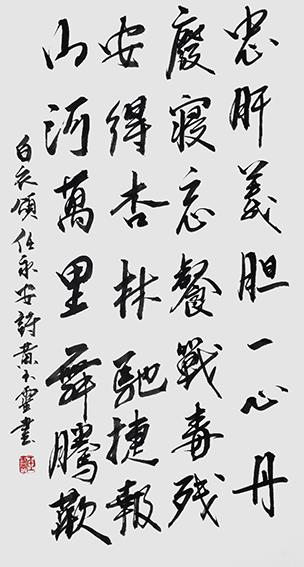 忠肝義胆一心丹
廢寝忘餐戰毒残
安得杏林馳捷報
山河萬里舞騰歡
白衣頌任永安詩黄小雲書